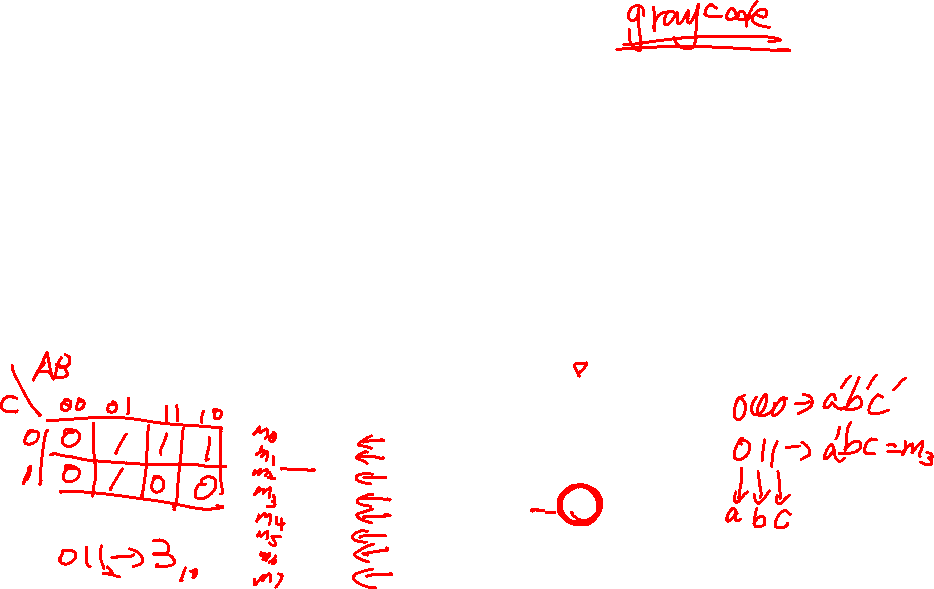 graycode
AB
C
00 01 11 10
0 0 1 1 1
1 0 1 0 0
011₂→3₁₀
m0
m1
m2
m3
m4
m5
m6
m7
000→a'b'c'
011→a'bc=m3
a b c